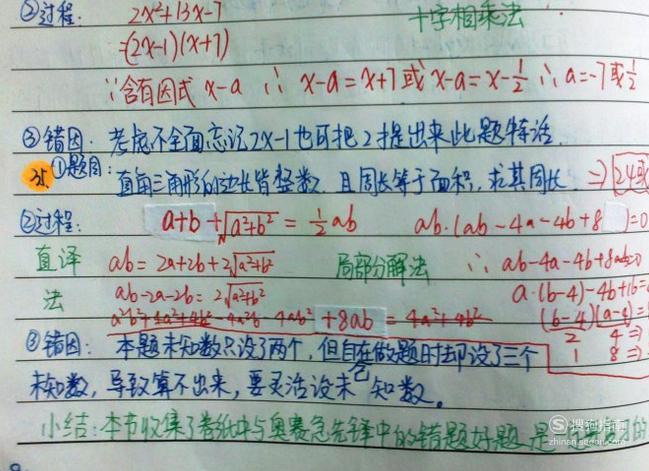 ②过程: 2x²+13x-7 十字相乘法
=(2x-1)(x+7)
∵含有因式 x-a ∴ x-a=x+7或x-a=x-½ ∴a=-7或½
③错因: 考虑不全面忘记2x-1也可把2提出来此题特活
①题目: 直角三角形的边长皆整数,且周长等于面积,求其周长 ⇒ 24或
②过程: a+b+√a²+b² = ½ab ab·(ab-4a-4b+8)=0
直译 ab=2a+2b+2√a²+b² 局部分解法 ∴ ab-4a-4b+8=0
法 ab-2a-2b=2√a²+b² a·(b-4)-4b+16=
a²b²+4a²+4b²-4a²b-4ab²+8ab=4a²+4b² (b-4)(a-4)=
2 4⇒
1 8⇒
③错因: 本题未知数只设了两个,但自在做题时却设了三个
未知数,导致算不出来,要灵活设未知数。
小结:本节收集了卷纸中与奥赛急先锋中的错题好题 是 的
搜狗指南
zhinan.sogou.com